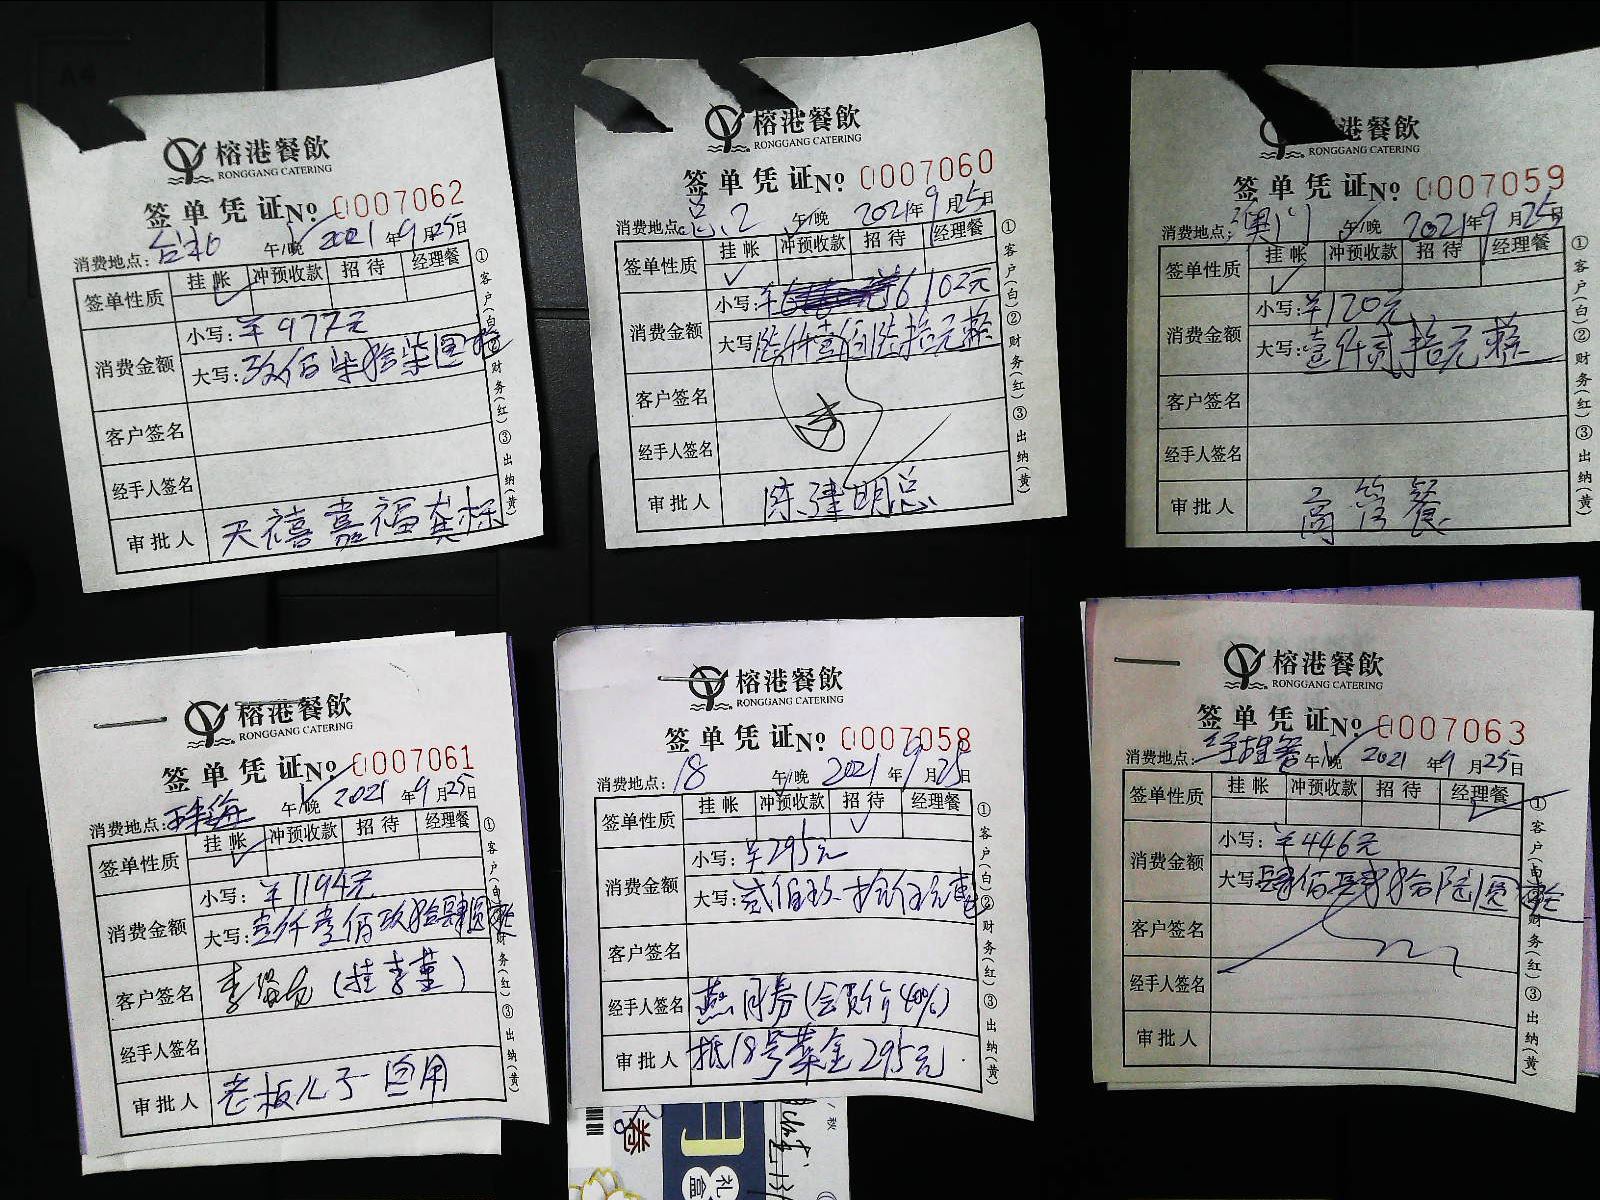 榕港餐飲
RONGGANG CATERING
签单凭证No 0007062
消费地点: 台北 午/晚 2021年9月25日
签单性质 挂帐 冲预收款 招待 经理餐
消费金额 小写: ¥977元
大写: 玖佰柒拾柒圆整
客户签名
经手人签名
审批人 天禧嘉福龚栋
①客户(白)②财务(红)③出纳(黄)
榕港餐飲
RONGGANG CATERING
签单凭证No 0007060
消费地点: 总2 午/晚 2021年9月25日
签单性质 挂帐 冲预收款 招待 经理餐
消费金额 小写: ¥6102元
大写: 陆仟壹佰陆拾元整
客户签名
经手人签名
审批人 陈建明总
①客户(白)②财务(红)③出纳(黄)
港餐飲
RONGGANG CATERING
签单凭证No 0007059
消费地点: 澳门 午/晚 2021年9月25日
签单性质 挂帐 冲预收款 招待 经理餐
消费金额 小写: ¥1120元
大写: 壹仟贰拾元整
客户签名
经手人签名
审批人 高管餐
①客户(白)②财务(红)③出纳(黄)
榕港餐飲
RONGGANG CATERING
签单凭证No 0007061
消费地点: 珠海 午/晚 2021年9月25日
签单性质 挂帐 冲预收款 招待 经理餐
消费金额 小写: ¥1194元
大写: 壹仟壹佰玖拾肆圆整
客户签名 (挂李董)
经手人签名
审批人 老板儿子 宴用
①客户(白)②财务(红)③出纳(黄)
榕港餐飲
RONGGANG CATERING
签单凭证No 0007058
消费地点: 18 午/晚 2021年9月25日
签单性质 挂帐 冲预收款 招待 经理餐
消费金额 小写: ¥295元
大写: 贰佰玖拾伍元整
客户签名
经手人签名 燕月券(会员价40%)
审批人 抵18号菜金295元.
①客户(白)②财务(红)③出纳(黄)
券
月
礼盒
秋
榕港餐飲
RONGGANG CATERING
签单凭证No 0007063
消费地点: 经理餐 午/晚 2021年9月25日
签单性质 挂帐 冲预收款 招待 经理餐
消费金额 小写: ¥446元
大写: 肆佰肆拾陆圆整
客户签名
经手人签名
审批人
①客户(白)②财务(红)③出纳(黄)